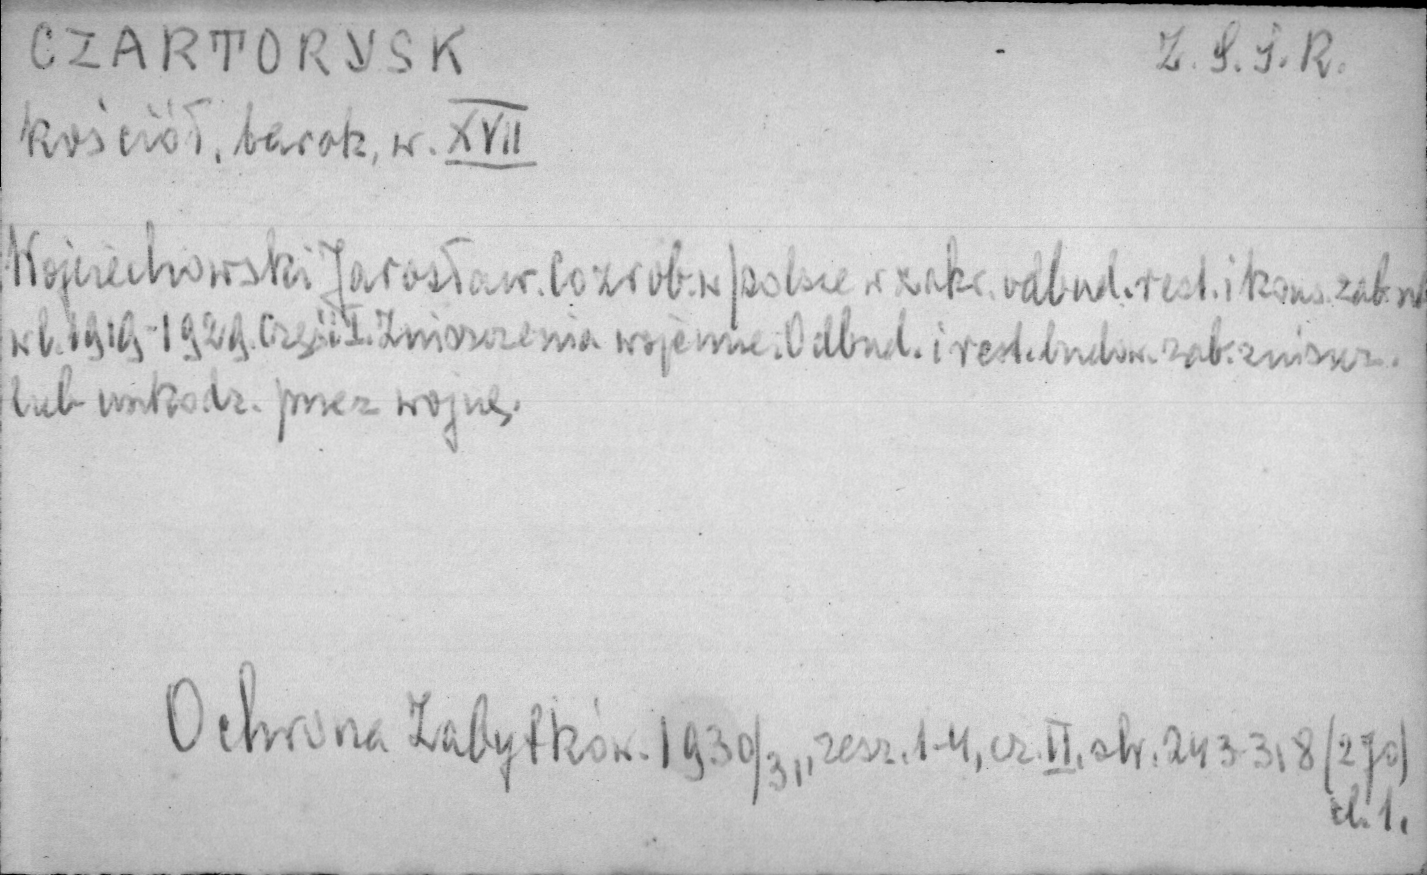 CZARTORYSK Z.S.S.R.
kościół, barok, w. XVII
Wojciechowski Jarosław. Co zrob. w polsce w zakr. odbud. rest. i kons. zab. szt.
w l. 1919-1929. Część I. Zniszczenia wojenne. Odbud. i rest. budow. zab. zniszcz.
lub uszkodz. przez wojnę.
Ochrona Zabytków. 1930/31, zesz. 1-4, cz. II. str. 243-318 (270)
il. 1.